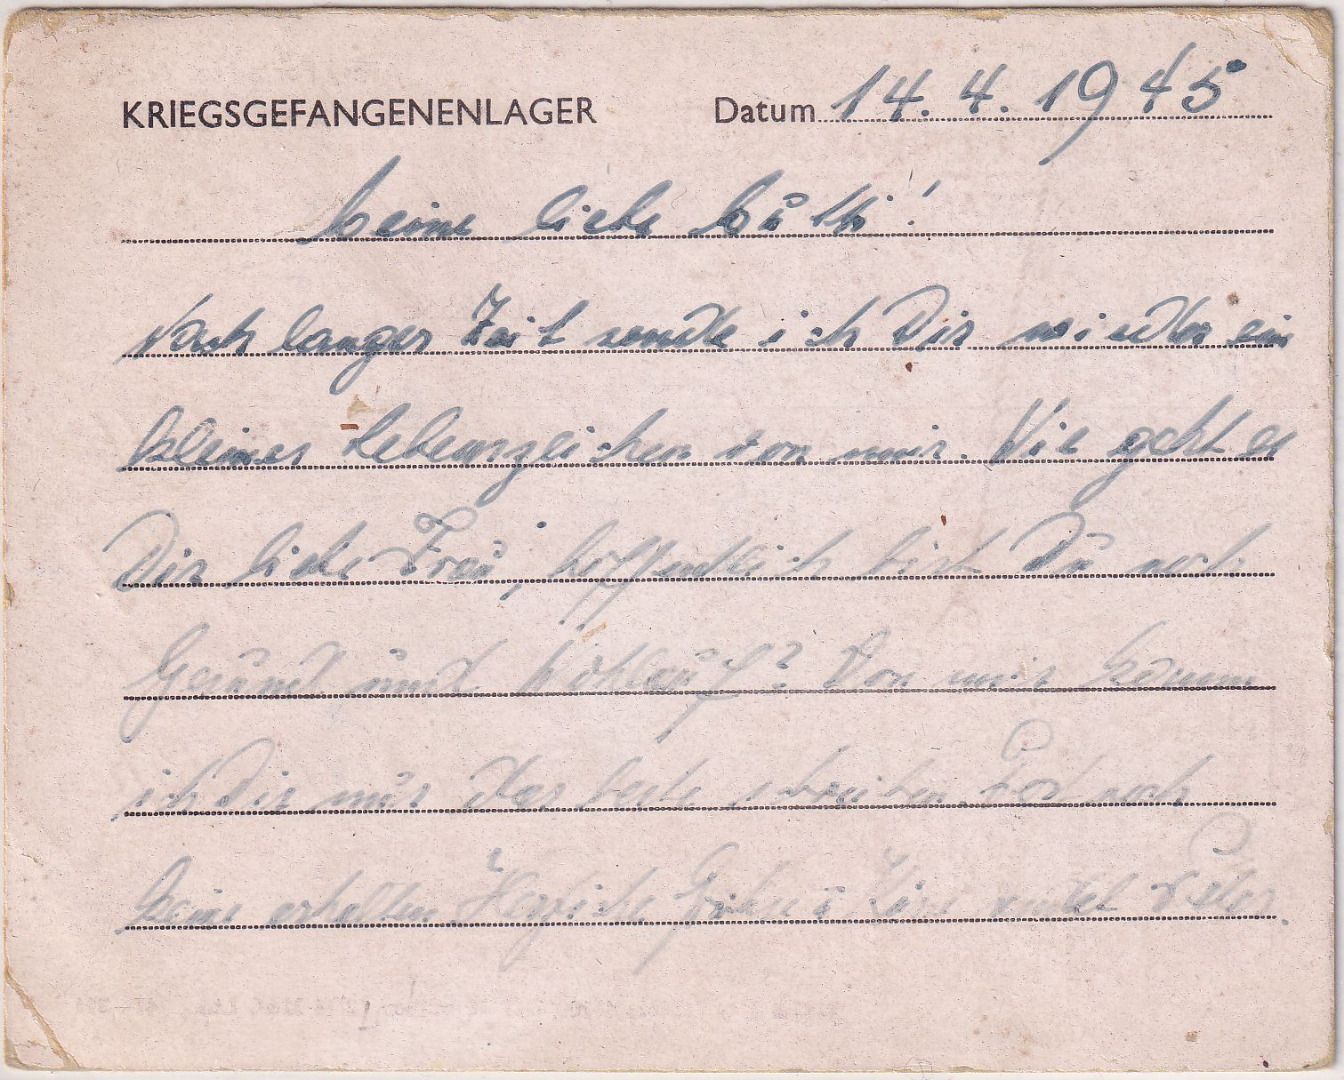 KRIEGSGEFANGENENLAGER Datum 14.4.1945
Meine liebe !
Nach langer Zeit sende ich Dir wieder ein
kleines Lebenszeichen von mir. Wie geht es
Dir liebe Frau, hoffentlich bist Du noch
Gesund und wohlauf? Von mir kann
ich Dir nur das beste schreiben. Post noch
keine erhalten. Herzliche Grüße u. Küsse sendet Peter.